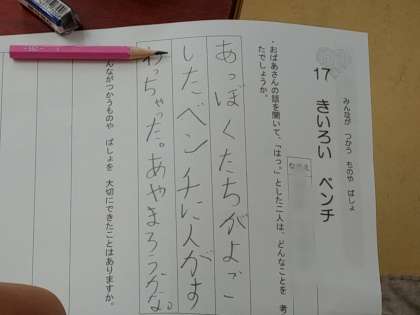 みんなが つかう ものや ばしょ
17 きいろい ベンチ
・おばあさんの話を聞いて、「はっ。」とした二人は、どんなことを 考
たでしょうか。
あっぼくたちがよご
したベンチに人がす
わっちゃった。あやまろうかな。
んながつかうものや ばしょを 大切にできたことはありますか。